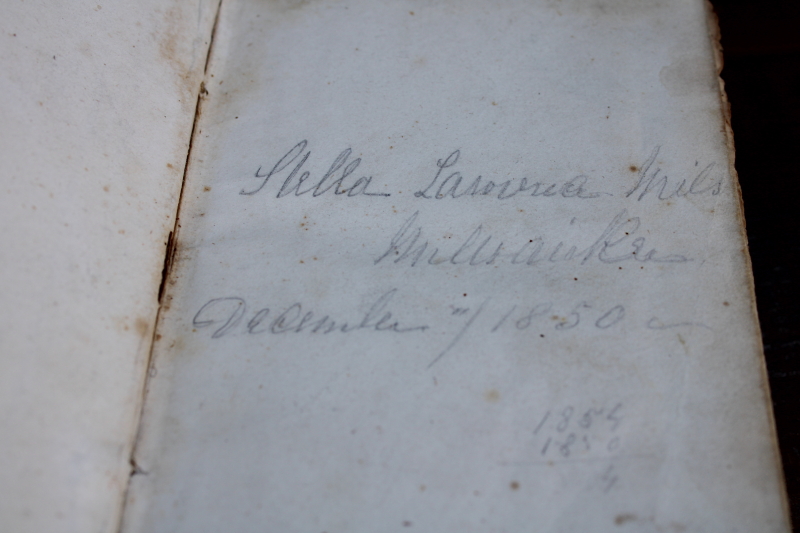 Stella Larovna Mils
Milwaukee
December "/1850
1854
1850
4